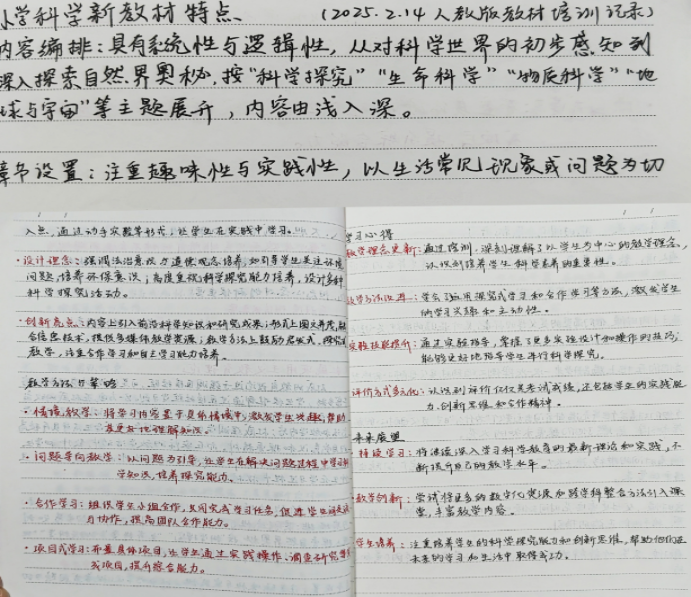 小学科学新教材特点、(2025.2.14人教版教材培训记录)
内容编排:具有系统性与逻辑性,从对科学世界的初步感知到
深入探索自然界奥秘,按"科学探究""生命科学""物质科学""地
球与宇宙"等主题展开,内容由浅入深。
章节设置:注重趣味性与实践性,以生活常见现象或问题为切
入点,通过动手实验等形式,让学生在实践中学习。
·设计理念:强调法治意识与道德观念培养,如引导学生关注环境
问题,培养环保意识;高度重视科学探究能力培养,设计多种
科学探究活动。
·创新亮点:内容上引入前沿科学知识和研究成果;形式上图文并茂,融
合信息技术,提供多媒体教学资源;教学方法上鼓励启发式、探究式
教学,注重合作学习和自主学习能力培养。
教学方法与策略
·情境教学:将学习内容置于具体情境中,激发学生兴趣,帮助
其更好地理解知识。
·问题导向教学:以问题为引导,让学生在解决问题过程中学习科
学知识,培养探究能力。
·合作学习:组织学生小组合作,共同完成学习任务,促进学生间交流
与协作,提高团队合作能力。
·项目式学习:布置具体项目,让学生通过实践操作、调查研究等完
成项目,提升综合能力。
学习心得
教学理念更新:通过培训,深刻理解了以学生为中心的教学理念,
认识到培养学生科学素养的重要性。
教学方法改进:学会了运用探究式学习和合作学习等方法,激发学生
的学习兴趣和主动性。
实验技能提升:通过实验指导,掌握了更多实验设计和操作的技巧,
能够更好地指导学生进行科学探究。
评价方式多元化:认识到评价不仅仅是考试成绩,还包括学生的实践能
力、创新思维和合作精神。
未来展望
持续学习:将继续深入学习科学教育的最新理论和实践,不
断提升自己的教学水平。
教学创新:尝试将更多的数字化资源和跨学科整合方法引入课
堂,丰富教学内容。
学生培养:注重培养学生的科学探究能力和创新思维,帮助他们在
未来的学习和生活中取得成功。